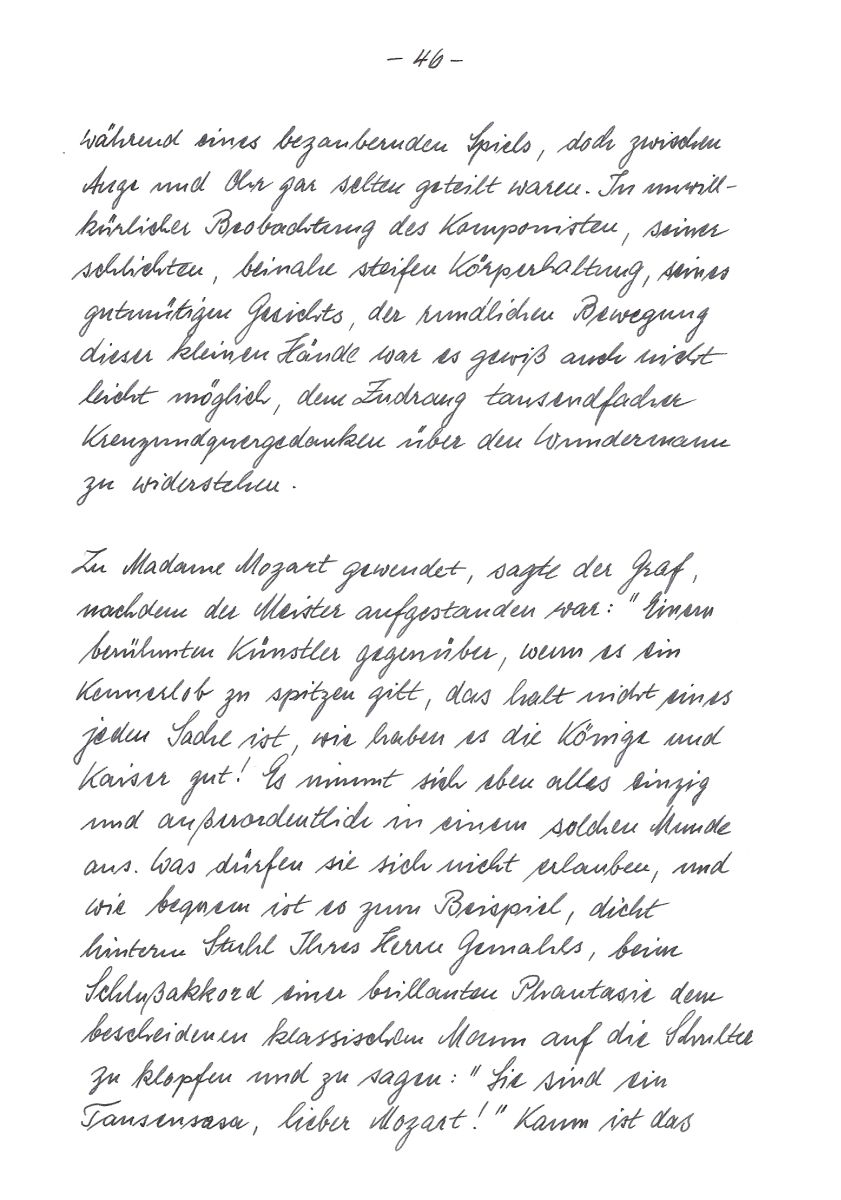 - 46 -
während eines bezaubernden Spiels, doch zwischen
Auge und Ohr gar selten geteilt waren. In unwill-
kürlicher Beobachtung des Komponisten, seiner
schlichten, beinahe steifen Körperhaltung, seines
gutmütigen Gesichts, der rundlichen Bewegung
dieser kleinen Hände war es gewiß auch nicht
leicht möglich, dem Zudrang tausendfacher
Kreuzundquergedanken über den Wundermann
zu widerstehen.
Zu Madame Mozart gewendet, sagte der Graf,
nachdem der Meister aufgestanden war: "Einem
berühmten Künstler gegenüber, wenn es ein
Kennerlob zu spitzen gilt, das halt nicht eines
jeden Sache ist, wie haben es die Könige und
Kaiser gut! Es nimmt sich eben alles einzig
und außerordentlich in einem solchen Munde
aus. Was dürfen sie sich nicht erlauben, und
wie bequem ist es zum Beispiel, dicht
hinterm Stuhl Ihres Herrn Gemahls, beim
Schlußakkord einer brillanten Phantasie dem
bescheidenen klassischen Mann auf die Schulter
zu klopfen und zu sagen: "Sie sind ein
Tausensasa, lieber Mozart!" Kaum ist das